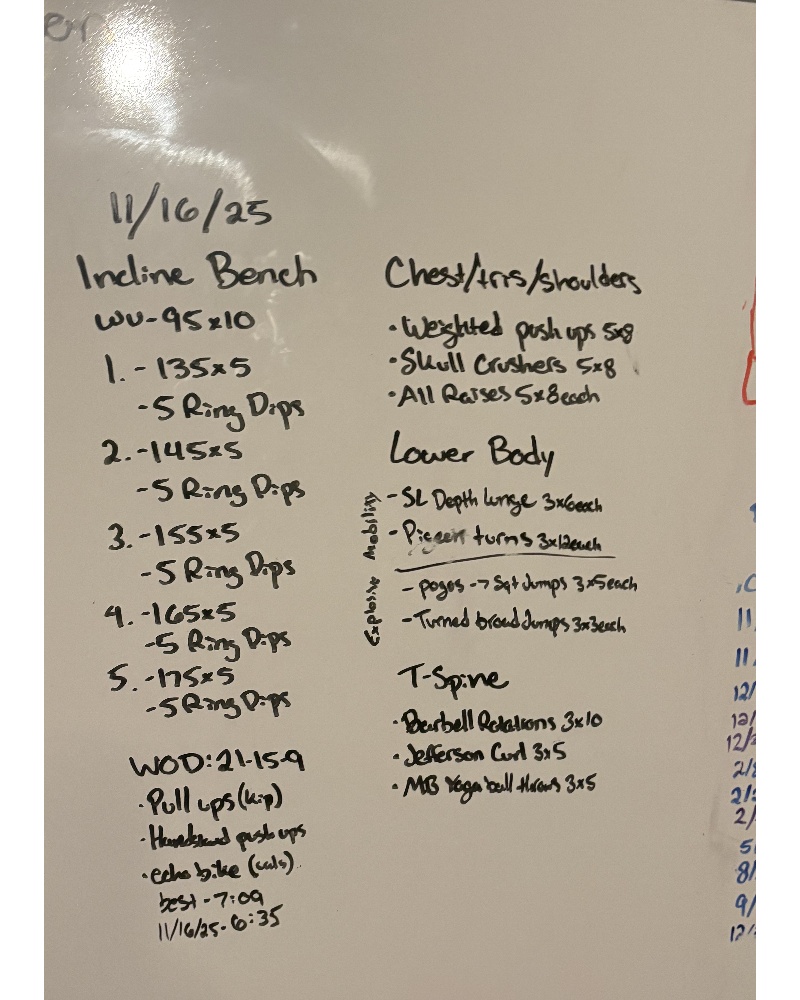 11/16/25
Incline Bench
WU-95x10
1. - 135x5
-5 Ring Dips
2. -145x5
-5 Ring Dips
3. -155x5
-5 Ring Dips
4. -165x5
-5 Ring Dips
5. -175x5
-5 Ring Dips
WOD: 21-15-9
• Pull ups (kip)
• Handstand push ups
• echo bike (cals)
best - 7:09
11/16/25- 6:35
Chest/tris/shoulders
• Weighted push ups 5x8
• Skull Crushers 5x8
• All Raises 5x8 each
Lower Body
Mobility
- SL Depth lunge 3x6 each
- Pigeon turns 3x12 each
Explosive
- pogos -> Sqt Jumps 3x5 each
- Turned broad Jumps 3x3 each
T-Spine
• Barbell Rotations 3x10
• Jefferson Curl 3x5
• MB Yoga ball throws 3x5
11
11
12/
12/
12/
2/
2/
2/
5
8/
9/
12/